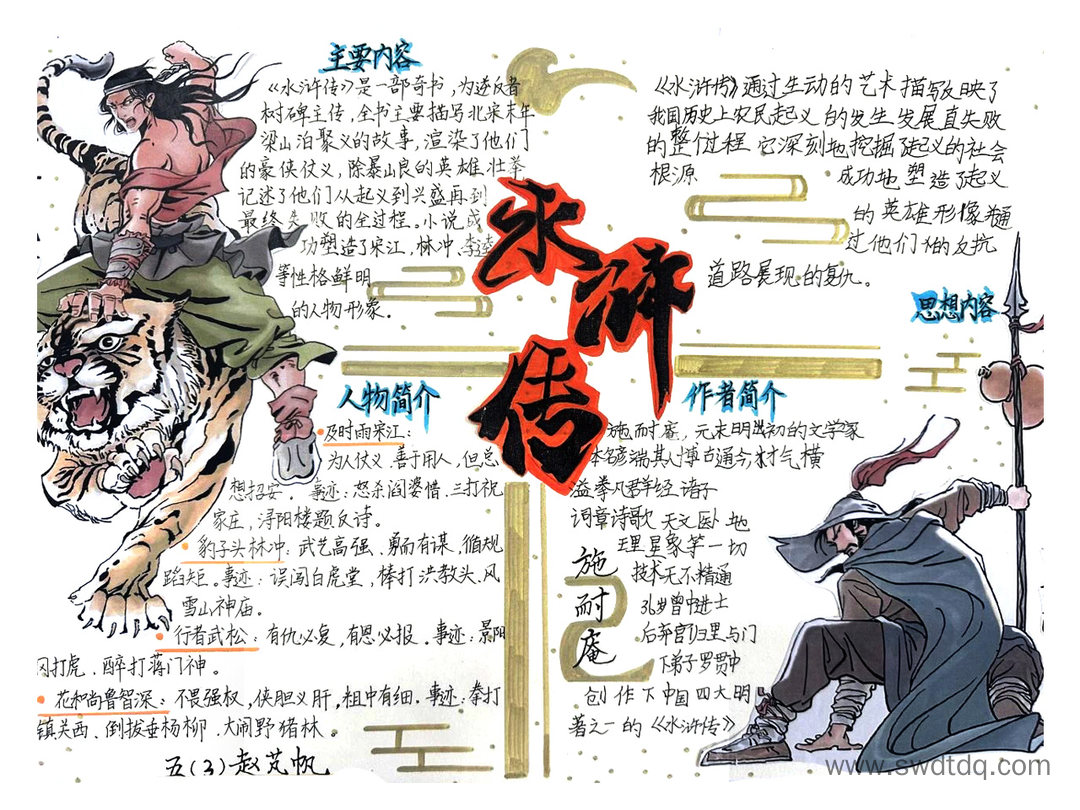 主要内容
《水浒传》是一部奇书，为造反者
树碑主传，全书主要描写北宋末年
梁山泊聚义的故事，渲染了他们
的豪侠仗义，除暴山良的英雄壮举
记述了他们从起义到兴盛再到
最终失败的全过程。小说成
功塑造了宋江，林冲、李逵
等性格鲜明
的人物形象。
水浒传
《水浒传》通过生动的艺术描写反映了
我国历史上农民起义的发生发展直失败
的整个过程 它深刻地挖掘了起义的社会
根源 成功地塑造了起义
的英雄形像 通
过他们的反抗
道路展现的复仇。
思想内容
人物简介
及时雨宋江：
为人仗义、善于用人，但总
想招安。事迹：怒杀阎婆惜、三打祝
家庄、浔阳楼题反诗。
豹子头林冲：武艺高强、勇而有谋、循规
蹈矩。事迹：误闯白虎堂，棒打洪教头、风
雪山神庙。
行者武松：有仇必复，有恩必报。事迹：景阳
冈打虎、醉打蒋门神。
花和尚鲁智深：不畏强权，侠胆义肝，粗中有细。事迹：拳打
镇关西、倒拔垂杨柳、大闹野猪林。
五(3)赵芃帆
作者简介
施耐庵，元末明初的文学家
本名彦端其人博古通今才气横
溢 举凡群经诸子
词章诗歌 天文医卜地
理星象等一切
技术无不精通
36岁曾中进士
后弃官归里与门
下弟子罗贯中
创作下中国四大明
著之一的《水浒传》
施耐庵
www.swdtdq.com